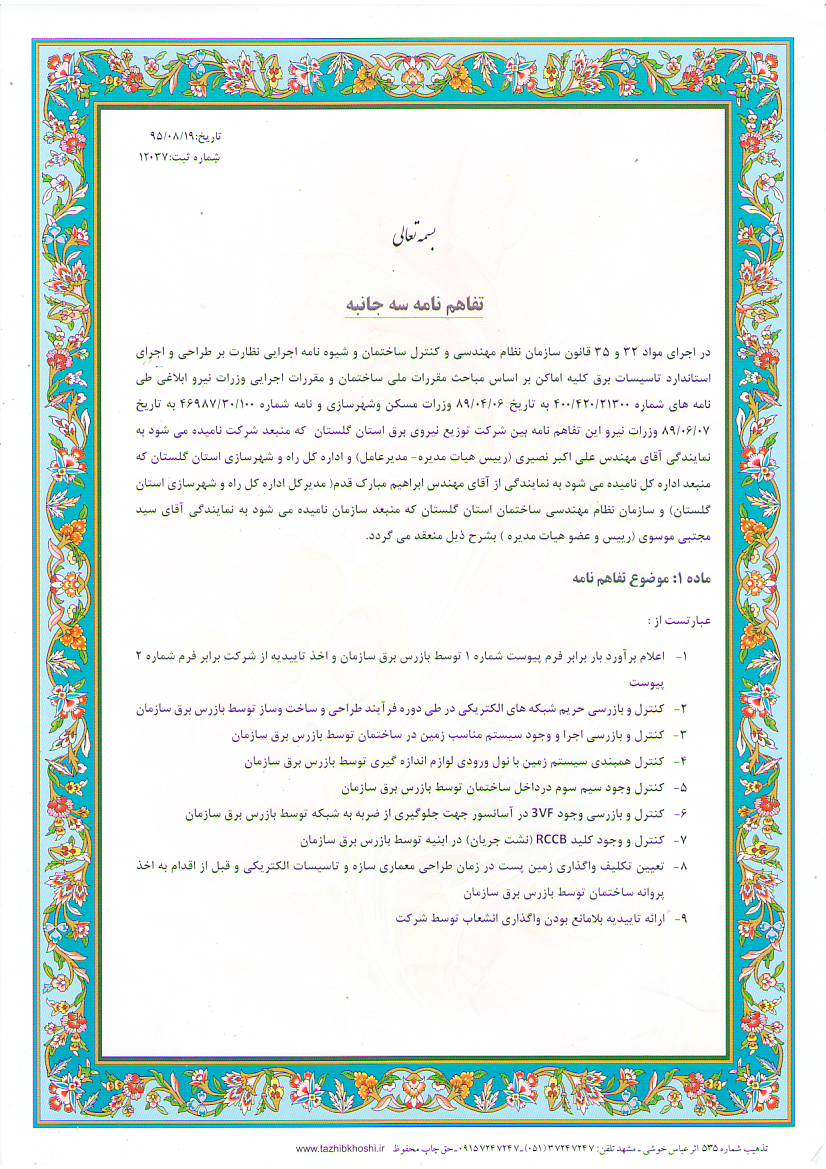 تاریخ:۹۵/۰۸/۱۹
شماره ثبت:۱۲۰۳۷
بسمه تعالی
تفاهم نامه سه جانبه
در اجرای مواد ۳۲ و ۳۵ قانون سازمان نظام مهندسی و کنترل ساختمان و شیوه نامه اجرایی نظارت بر طراحی و اجرای
استاندارد تاسیسات برق کلیه اماکن بر اساس مباحث مقررات ملی ساختمان و مقررات اجرایی وزرات نیرو ابلاغی طی
نامه های شماره ۴۰۰/۴۲۰/۲۱۳۰۰ به تاریخ ۸۹/۰۴/۰۶ وزرات مسکن وشهرسازی و نامه شماره ۴۶۹۸۷/۳۰/۱۰۰ به تاریخ
۸۹/۰۶/۰۷ وزرات نیرو این تفاهم نامه بین شرکت توزیع نیروی برق استان گلستان که منبعد شرکت نامیده می شود به
نمایندگی آقای مهندس علی اکبر نصیری (رییس هیات مدیره- مدیرعامل) و اداره کل راه و شهرسازی استان گلستان که
منبعد اداره کل نامیده می شود به نمایندگی از آقای مهندس ابراهیم مبارک قدم( مدیرکل اداره کل راه و شهرسازی استان
گلستان) و سازمان نظام مهندسی ساختمان استان گلستان که منبعد سازمان نامیده می شود به نمایندگی آقای سید
مجتبی موسوی (رییس و عضو هیات مدیره ) بشرح ذیل منعقد می گردد.
ماده ۱: موضوع تفاهم نامه
عبارتست از :
۱- اعلام برآورد بار برابر فرم پیوست شماره ۱ توسط بازرس برق سازمان و اخذ تاییدیه از شرکت برابر فرم شماره ۲
پیوست
۲- کنترل و بازرسی حریم شبکه های الکتریکی در طی دوره فرآیند طراحی و ساخت وساز توسط بازرس برق سازمان
۳- کنترل و بازرسی اجرا و وجود سیستم مناسب زمین در ساختمان توسط بازرس برق سازمان
۴- کنترل همبندی سیستم زمین با نول ورودی لوازم اندازه گیری توسط بازرس برق سازمان
۵- کنترل وجود سیم سوم درداخل ساختمان توسط بازرس برق سازمان
۶- کنترل و بازرسی وجود 3VF در آسانسور جهت جلوگیری از ضربه به شبکه توسط بازرس برق سازمان
۷- کنترل و وجود کلید RCCB (نشت جریان) در ابنیه توسط بازرس برق سازمان
۸- تعیین تکلیف واگذاری زمین پست در زمان طراحی معماری سازه و تاسیسات الکتریکی و قبل از اقدام به اخذ
پروانه ساختمان توسط بازرس برق سازمان
۹- ارائه تاییدیه بلامانع بودن واگذاری انشعاب توسط شرکت
تذهیب شماره ۵۳۵ اثر عباس خوشی - مشهد تلفن: ۳۷۲۴۷۲۴۷ (۰۵۱)-۰۹۱۵۷۲۴۷۲۴۷-حق چاپ محفوظ www.tazhibkhoshi.ir